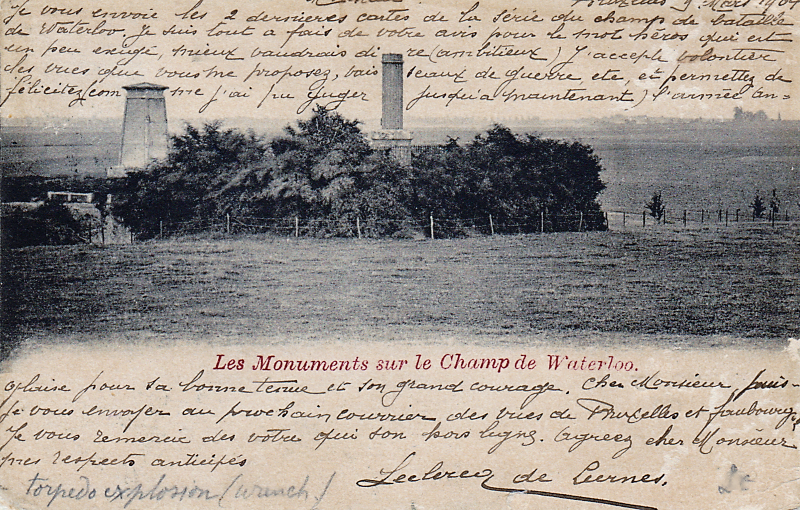 Bruxelles 9 Mars 190
Je vous envoie les 2 dernières cartes de la série du champ de bataille
de Waterloo, Je suis tout a fais de votre avis pour le mot héros qui est
un peu exugé, mieux vaudrais di re (ambitieux) J'accepte volontier
les vues que vous me proposez, vais seaux de guerre, etc, et permettez de
féliciter (com me j'ai pu juger jusqu'a maintenant) l'armée an-
Les Monuments sur le Champ de Waterloo.
glaise pour sa bonne tenue et son grand courage. Cher Monsieur, puis-
Je vous envoyer au prochain courrier des vues de Bruxelles et faubourgs
Je vous remercie des votre qui son hors ligne. Agréez cher Monsieur
mes respects anticipés
Leclercq de
torpedo explosion (wrench)